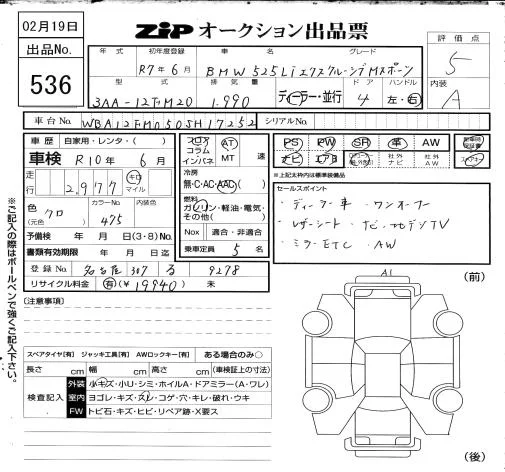 02月19日
ZIP オークション出品票
出品No.
536
評価点
5
内装
A
年式 初年度登録 車名 グレード
R7年6月 BMW 525LI エクスクルーシブMスポーツ
型式 排気量 ドア ハンドル
3AA-12FM20 1.990 ディーラー・並行 4 左・右
車台No. シリアルNo.
車歴 自家用・レンタ・( )
車検 R10年 6月
走行 2,977 キロ マイル
色 クロ (元色) カラーNo. 475 内装色
予備検 年 月 日(3・8)No.
書類有効期限 年 月 日迄
登録No. 名古屋 307 る 9278
リサイクル料金 有(¥19940) 未
フロア コラム インパネ AT MT 速
冷房 無・C・AC・AAC( )
燃料 ガソリン・軽油・電気・その他( )
Nox 適合・非適合
乗車定員 5 名
PS PW SR 革 AW
ナビ エアB 社外ナビ 社外AW
※上記太枠内は標準装備品
セールスポイント
・ディーラー車 ・ワンオーナー
・レザーシート ・ナビ・フルセグTV
・ミラーETC ・AW
※ご記入の際はボールペンで強くご記入下さい。
[注意事項]
A1
(前)
スペアタイヤ[有] ジャッキ工具[有] AWロックキー[有] ある場合のみ○
長さ cm 幅 cm 高さ cm (車検証上の寸法)
検査記入
外装 小キズ・小U・シミ・ホイルA・ドアミラー(A・ワレ)
室内 ヨゴレ・キズ・スレ・コゲ・穴・キレ・破れ・ウキ
FW トビ石・キズ・ヒビ・リペア跡・X要ス
(後)